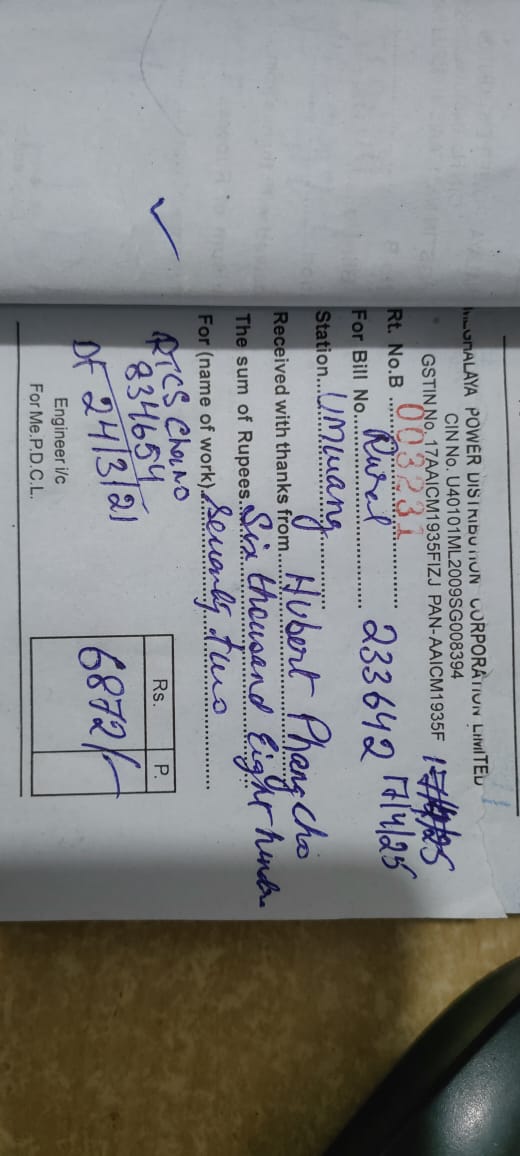 MEGHALAYA POWER DISTRIBUTION CORPORATION LIMITED
CIN No. U40101ML2009SG008394
GSTIN No. 17AAICM1935FIZJ PAN-AAICM1935F
Rt. No.B 003231 17/4/25
For Bill No. Rural 233642
Station Umwang
Received with thanks from Hubert Phangcho
The sum of Rupees Six thousand Eight hundre
For (name of work) Seventy two
Rs. P.
6872/-
834654
Dt 24/3/21
Engineer i/c
For Me.P.D.C.L.